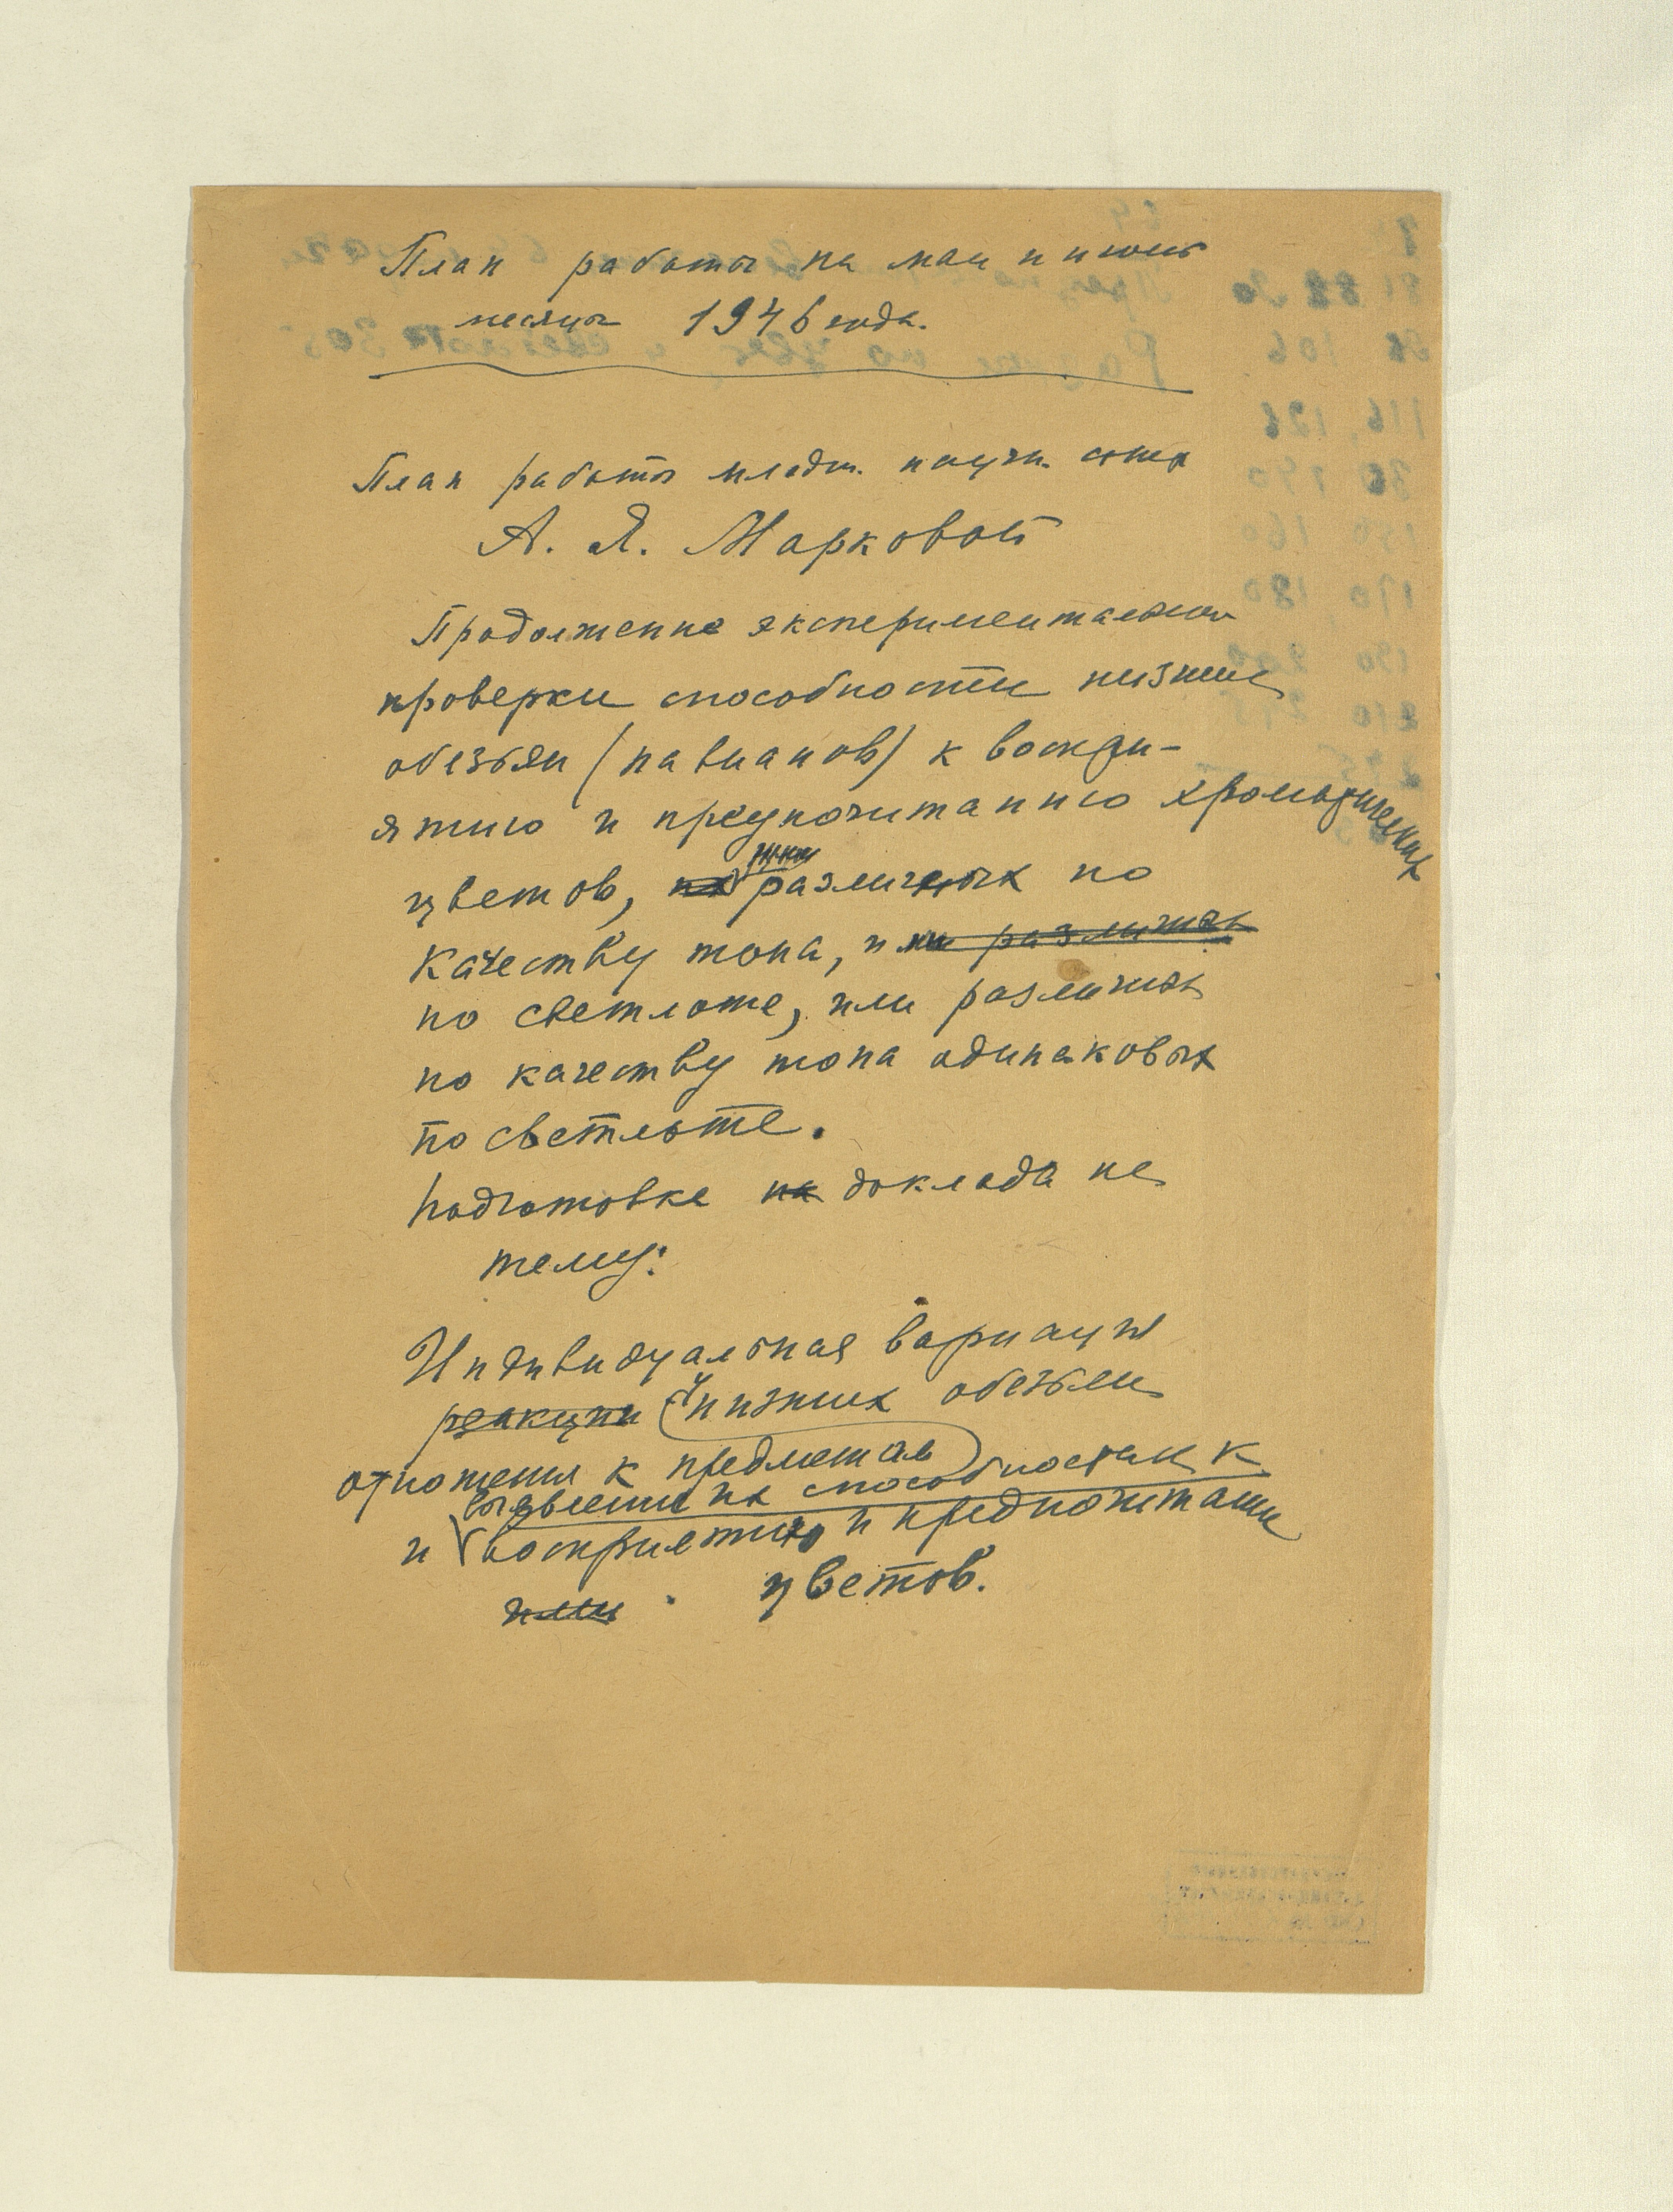 План работы на май и июнь
месяцы 1946 года.
План работы младш. научн. сотр
А. Я. Марковой
Продолжение экспериментальной
проверки способности низших
обезьян (павианов) к воспри-
ятию и предпочитанию хроматических
цветов, различных по
качеству тона, и
по светлоте, или различных
по качеству тона одинаковых
по светлоте.
Подготовка доклада на
тему:
Индивидуальная вариация
реакции у низших обезьян
отношения к предметам
выявление их способностях к
и восприятию и предпочитанию
или цветов.